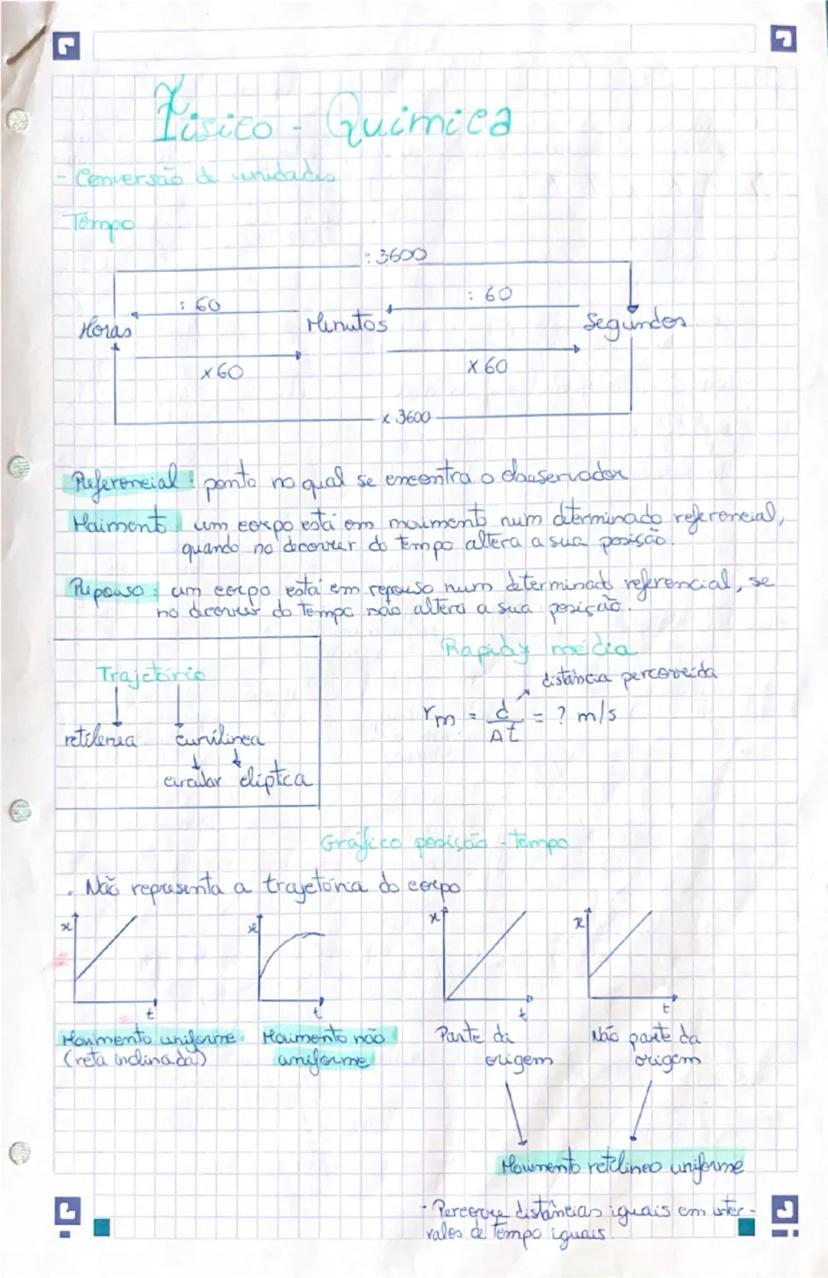 Fisico - Química
- Conversão de unidades
Tempo
: 3600
: 60
: 60
Horas
Minutos
Segundos
x 60
x 60
x 3600
Referencial : ponto no qual se encontra o observador
Movimento um corpo está em movimento num determinado referencial,
quando no decorrer do tempo altera a sua posição.
Repouso : um corpo está em repouso num determinado referencial, se
no decorrer do tempo não altera a sua posição.
Trajetória
retilenia curvílinea
circular elíptica
Rapidez média
distância percorrida
rm = d/Δt = ? m/s
Gráfico posição - tempo
. Não representa a trajetória do corpo
x
t
x
t
x
t
x
t
Movimento uniforme
(reta inclinada)
Movimento não
uniforme
Parte da
origem
Não parte da
origem
Movimento retilineo uniforme
- Percorre distâncias iguais em inter-
valos de tempo iguais.